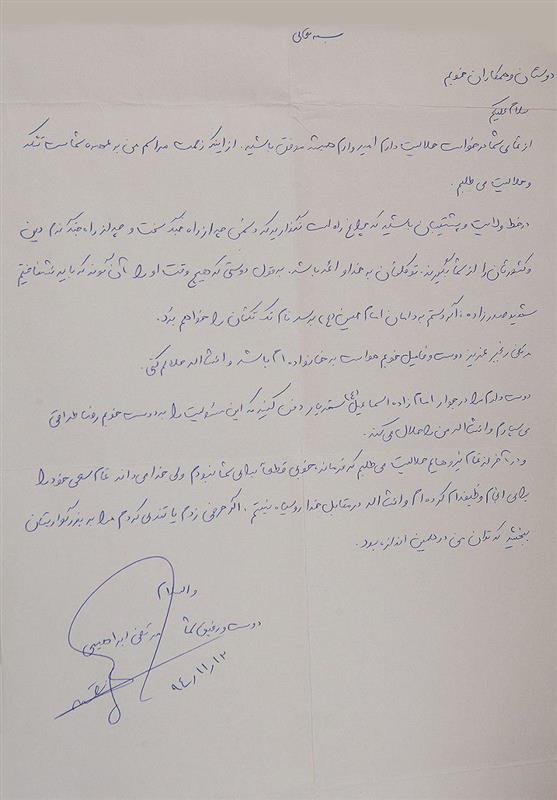 بسمه تعالی
دوستان و همکاران خوبم
سلام علیکم
از تمامی شما درخواست حلالیت دارم امیدوارم همیشه موفق باشید. از اینکه زحمت مراسم من به عهده شماست تشکر
و حلالیت می طلبم.
در خط ولایت و پشتیبان باشید که چراغ راه است نگذارید که دشمن چه از راه جنگ سخت و چه از راه جنگ نرم دین
و کشورتان را از شما بگیرند. توکلتان به خدا و ائمه باشد. به قول دوستی که هیچ وقت او را آن گونه که باید نشناختیم
شهید صدرزاده: اگر دستم به دامان امام حسین (ع) برسد نام تک تکتان را خواهم برد.
عزیز دوست و فامیل خوبم حواست به خانواده ام باشد و انشاالله حلالم کنی.
دوست دارم مرا در جوار امام زاده اسماعیل (ع) دفن کنید که این مسئولیت را به دوست خوبم رضا
می سپارم و انشاالله من را حلال می کند.
و در آخر از تمام نیروهایم حلالیت می طلبم که فرمانده خوبی قطعاً برای شما نبودم ولی خدا می داند تمام سعی خود را
برای انجام وظیفه ام کرده ام و انشاالله در مقابل خدا روسیاه نیستم. اگر حرفی زدم یا تندی کردم مرا به بزرگواریتان
ببخشید که توان من در همین اندازه بود.
والسلام
دوست و رفیق شما مرتضی ابراهیمی
۹۴/۱۱/۱۲